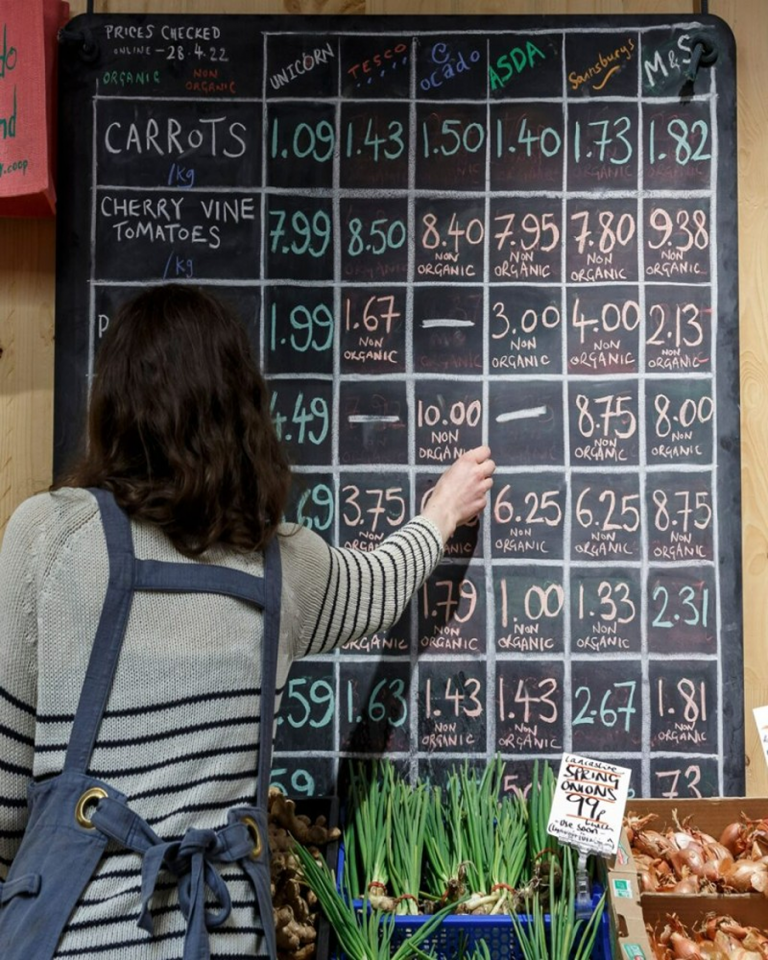 PRICES CHECKED
ONLINE - 28.4.22
ORGANIC NON ORGANIC
UNICORN TESCO Ocado ASDA Sainsbury's M&S
CARROTS /kg 1.09 1.43 1.50 1.40 1.73 1.82
CHERRY VINE TOMATOES /kg 7.99 8.50 8.40 NON ORGANIC 7.95 NON ORGANIC 7.80 NON ORGANIC 9.38 NON ORGANIC
P 1.99 1.67 NON ORGANIC — 3.00 NON ORGANIC 4.00 NON ORGANIC 2.13 NON ORGANIC
4.49 — 10.00 NON ORGANIC — 8.75 NON ORGANIC 8.00 NON ORGANIC
69 3.75 NON ORGANIC 6.25 NON ORGANIC 6.25 NON ORGANIC 8.75 NON ORGANIC
1.79 NON ORGANIC 1.00 NON ORGANIC 1.33 NON ORGANIC 2.31
.59 1.63 1.43 NON ORGANIC 1.43 NON ORGANIC 2.67 1.81 NON ORGANIC
59 73
Lancashire
SPRING
ONIONS
99p
bunch
USE SOON
.coop